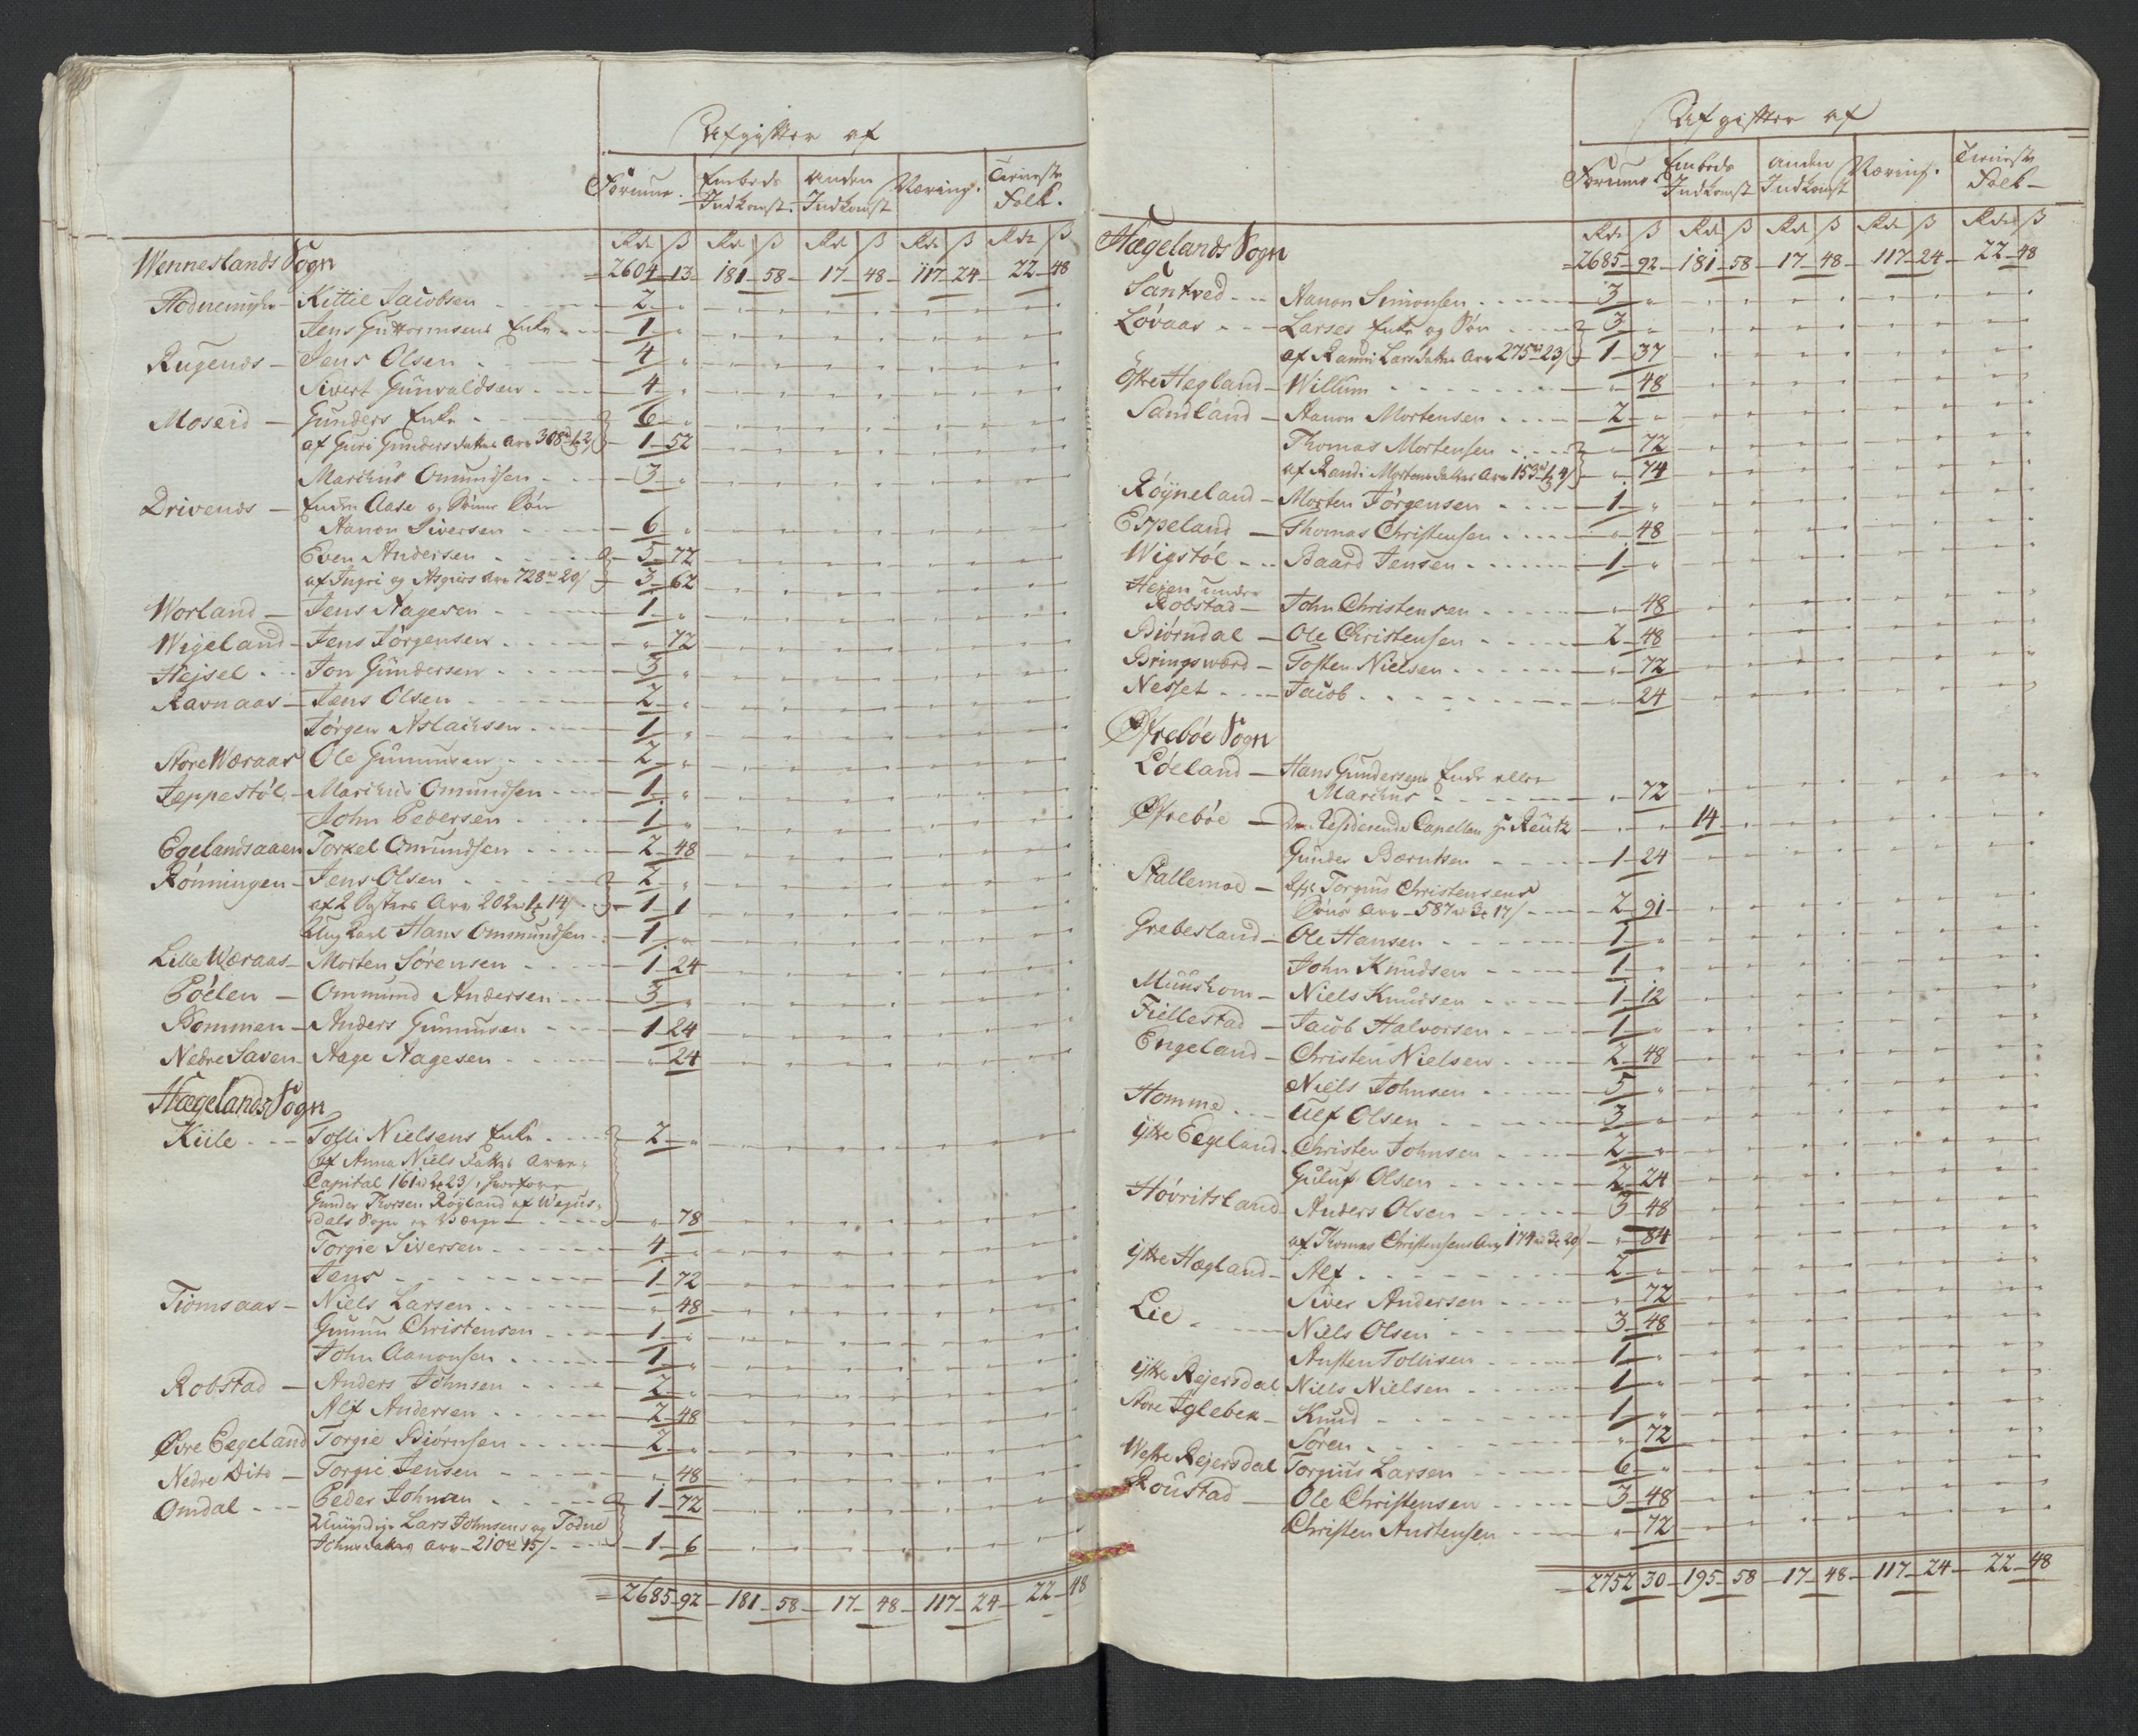 Afgifter af
Formue. Embeds Indkomst. Anden Indkomst Næring. Tieniste Folk.
Rdr ß Rd ß Rd ß Rdr ß Rdr ß
Wenneslands Sogn 2604 13 181 58 17 48 117 24 22 48
Kittil Jacobsen 2 "
Jens Guttormsens Enke 1 "
Rugenes Jens Olsen 4 "
Sivert Gunvaldsen 4 "
Moseid Gunders Enke 6 "
af Guri Gundersdatters Arv 308 rd 1 ort 2 ß 1 52
Marchus Omundsen 3 "
Drivenes Enken Aase og Sønne Søn
Aanon Siversen 6 "
Even Andersen 5 72
af Ingri og Asgiers Arv 728 rd 20 ß 3 62
Worland Jens Aagesen 1 "
Wigeland Jens Jørgensen " 72
Hejsel Jon Gundersen 3 "
Ravnaas Jens Olsen 2 "
Jørgen Aslachsen 1 "
Store Wæraas Ole Gunnunsen 2 "
Jeppestøl Marchus Omundsen 1 "
John Pedersen 1 "
Egelandsaaen Torkel Omundsen 2 48
Rønningen Jens Olsen 2 "
af 2 Søstres Arv 202 rd 1 ort 14 ß 1 1
Ung Karl Hans Ommundsen 1 "
Lille Wæraas Morten Sørensen 1 24
Ommund Andersen 3 "
Bommen Anders Gunnunsen 1 24
Nedre Saven Aage Aagesen " 24
Hægelands Sogn
Kiile Tolli Nielsens Enke 2 "
af Anna Niels Datters Arve
Capital 161 rd 2 ort 23 ß, hvorfore
Gunder Thorsen Røyland af Wegus-
dals Sogn er Værge " 78
Torgie Siversen 4 "
Jens 1 72
Tiomsaas Niels Larsen " 48
Gunnun Christensen 1 "
John Aanonsen 1 "
Robstad Anders Johnsen 2 "
Alf Andersen 2 48
Øvre Eegeland Torgie Biørnsen 2 "
Nedre Dito Torgie Jensen " 48
Omdal Peder Johnsen 1 72
Umyndige Lars Johnsens og Todne
Johnsdatters Arv 210 rd 15 ß 1 6
2685 92 181 58 17 48 117 24 22 48
Afgifter af
Formue. Embeds Indkomst Anden Indkomst Næring. Tieniste Folk
Rdr ß Rd ß Rd ß Rdr ß Rdr ß
Hægelands Sogn 2685 92 181 58 17 48 117 24 22 48
Santved Aanon Simonsen 3 "
Løvaas Larses Enke og Søn 3 "
af Ranni Larsdatters Arv 275 rd 23 ß 1 37
Ytre Hegland Willum " 48
Sandland Aanon Mortensen 2 "
Thomas Mortensen " 72
af Randi Mortensdatters Arv 153 rd 1 ort 4 ß " 74
Røyneland Morten Jørgensen 1 "
Espeland Thomas Christensen " 48
Wigstøl Baard Jensen 1 "
Heien under
Robstad John Christensen " 48
Biørndal Ole Christensen 2 48
Bringsværd Tosten Nielsen " 72
Nesset Jacob " 24
Øfrebøe Sogn
Løeland Hans Gundersens Enke eller
Marchus " 72
Øfrebøe Den Residerende Capellan Hr Reutz " " 14
Gunder Bærntsen 1 24
Stallemoe Torgius Christensens
Søns Arv 587 rd 3 ort 17 ß 2 91
Grebesland Ole Hansen 1 "
John Knudsen 1 "
Muushom Niels Knudsen 1 12
Fiellestad Jacob Halvorsen 1 "
Engeland Christen Nielsen 2 48
Niels Johnsen 5 "
Homme Ulf Olsen 3 "
Ytre Eegeland Christen Johnsen 2 "
Guluf Olsen 2 24
Høvritsland Anders Olsen 3 48
af Thomas Christensens Arv 174 rd 3 ort 20 ß " 84
Ytre Hægland Alf 2 "
Siver Andersen " 72
Lie Niels Olsen 3 48
Austen Tollisen 1 "
Ytre Rejersdal Niels Nielsen 1 "
Store Iglebek Knud 1 "
Søren " 72
Westre Rejersdal Torgius Larsen 6 "
Roustad Ole Christensen 3 48
Christen Austensen " 72
2752 30 195 58 17 48 117 24 22 48